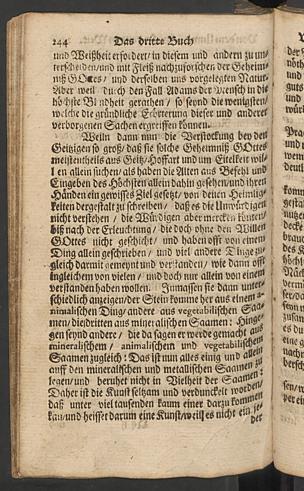 244 Das dritte Buch
und Weißheit erfordert/ in diesem und andern zu un-
terscheiden/ und mit Fleiß nachzuforschen der Geheim-
niß GOttes/ und derselben uns vorgelegten Natur.
Aber weil durch den Fall Adams der Mensch in die
höchste Blindheit gerathen/ so seynd die wenigsten/
welche die gründliche Erörterung dieser und anderer
verborgenen Sachen ergriffen können.
Weiln dann nun die Verstockung bey den
Geitzigen so groß/ daß sie solche Geheimniß GOttes
meistentheils aus Geitz/ Hoffart und um Eitelkeit wil-
len allein suchen/ als haben die Alten aus Befehl und
Eingeben des Höchsten allein dahin gesehen/ und ihren
Händen ein gewisses Ziel gesetzt/ von denen Heimlig-
keiten dergestalt zu schreiben/ daß es die Unwürdigen
nicht verstehen/ die Würdigen aber mercken könten/
biß nach der Erleuchtung/ die doch ohne den Willen
GOttes nicht geschicht/ und haben offt von einem
Ding allein geschrieben/ und viel andere Dinge zu-
gleich darmit gemeynt und verstanden/ wie dann offt
ingleichem von vielen/ und doch nur allein von einem
verstanden haben wollen. Inmassen sie dann unter-
schiedlich anzeigen/ der Stein komme her aus einem a-
nimalischen Ding/ andere aus vegetabilischen Saa-
men/ die dritten aus mineralischen Saamen: Hinge-
gen seynd andere/ die da sagen er werde gemacht aus
mineralischem/ animalischen und vegetabilischem
Saamen zugleich: Das ist nun alles einig und allein
auff den mineralischen und metallischen Saamen zu
legen/ und beruhet nicht in Vielheit der Saamen:
Daher ist die Kunst seltzam und verdunckelt worden/
daß unter viel tausenden kaum einer darzu kommen
kan/ und heisset darum eine Kunst/ weill es nicht ein je-
der